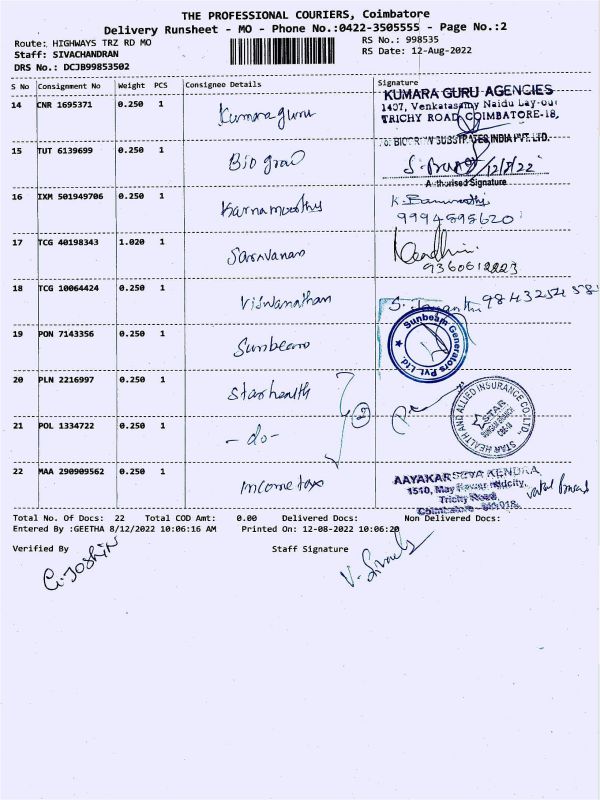 THE PROFESSIONAL COURIERS, Coimbatore
Delivery Runsheet - MO - Phone No.:0422-3505555 - Page No.:2
Route: HIGHWAYS TRZ RD MO
RS No.: 998535
Staff: SIVACHANDRAN
RS Date: 12-Aug-2022
DRS No.: DCJB99853502
S No Consignment No Weight PCS Consignee Details Signature
14 CNR 1695371 0.250 1 Kumara guru
KUMARA GURU AGENCIES
1407, Venkatasamy Naidu Lay-out
TRICHY ROAD, COIMBATORE-18.
15 TUT 6139699 0.250 1 Bio grow
SUBSTRATES INDIA PVT. LTD.
12/8/22
Authorised Signature
16 IXM 501949706 0.250 1 Karnamoorthy
9994898620
17 TCG 40198343 1.020 1 Saravanan
9360612223
18 TCG 10064424 0.250 1 Viswanathan
19 PON 7143356 0.250 1 Sunbeam
Sunbeam Generators Pvt. Ltd.
20 PLN 2216997 0.250 1 Star health
STAR HEALTH AND ALLIED INSURANCE CO. LTD.
STAR
21 POL 1334722 0.250 1 - do -
22 MAA 290909562 0.250 1 Income tax
AAYAKAR SEVA KENDRA
1510,
Trichy Road
Total No. Of Docs: 22 Total COD Amt: 0.00 Delivered Docs: Non Delivered Docs:
Entered By :GEETHA 8/12/2022 10:06:16 AM Printed On: 12-08-2022 10:06:20
Verified By Staff Signature
G. Joshin